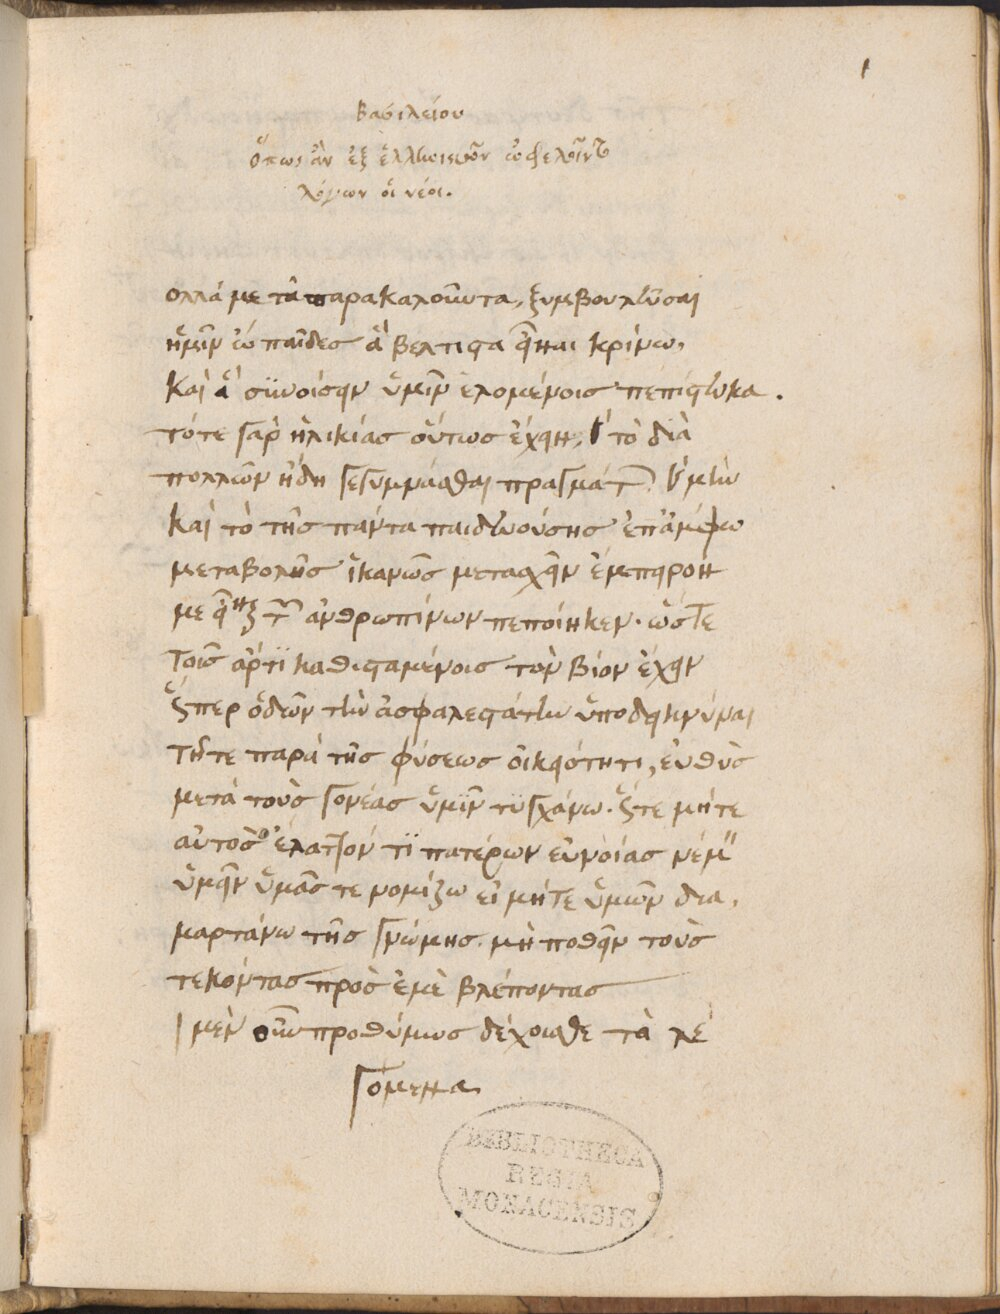 1
Βασιλείου
Ὅπως ἂν ἐξ ἑλληνικῶν ὠφελοῖντο
λόγων οἱ νέοι.
ολλά με τὰ παρακαλοῦντα, ξυμβουλεῦσαι
ἡμῖν ὦ παῖδες ἃ βέλτιστα εἶναι κρίνω,
καὶ ἃ συνοίσειν ὑμῖν ἑλομένοις πεπίστευκα.
τότε γὰρ ἡλικίας οὕτως ἔχειν, καὶ τὸ διὰ
πολλῶν ἤδη γεγυμνάσθαι πραγμάτων. καὶ μὴν
καὶ τὸ τῆς πάντα παιδευούσης ἐπ' ἄμφω
μεταβολῆς ἱκανῶς μετασχεῖν ἔμπειρον
με εἶναι τῶν ἀνθρωπίνων πεποίηκεν. ὥστε
τοῖς ἄρτι καθισταμένοις τὸν βίον ἔχειν
ὥσπερ ὁδῶν τὴν ἀσφαλεστάτην ὑποδεικνύναι
τῇτε παρὰ τῆς φύσεως οἰκειότητι, εὐθὺς
μετὰ τοὺς γονέας ὑμῖν τυγχάνω. ὥστε μήτε
αὐτὸς ἔλαττόν τι πατέρων εὐνοίας νέμ
ὑμᾶς τε νομίζω εἰ μήτε ὑμῶν δια
μαρτάνω τῆς γνώμης. μὴ ποθεῖν τοὺς
τεκόντας πρὸς ἐμὲ βλέποντας
μὲν οὖν προθύμως δέχοισθε τὰ λε
γόμενα
BIBLIOTHECA
REGIA
MONACENSIS